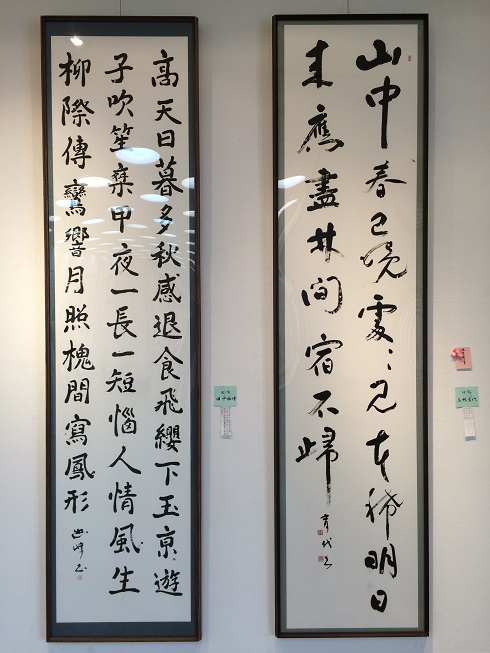 山中春已晚處〻見花稀明日
来應盡林間宿不歸
高天日暮多秋感退食飛纓下玉京遊
子吹笙乗甲夜一長一短惱人情風生
柳際傳鸞響月照槐間寫鳳形